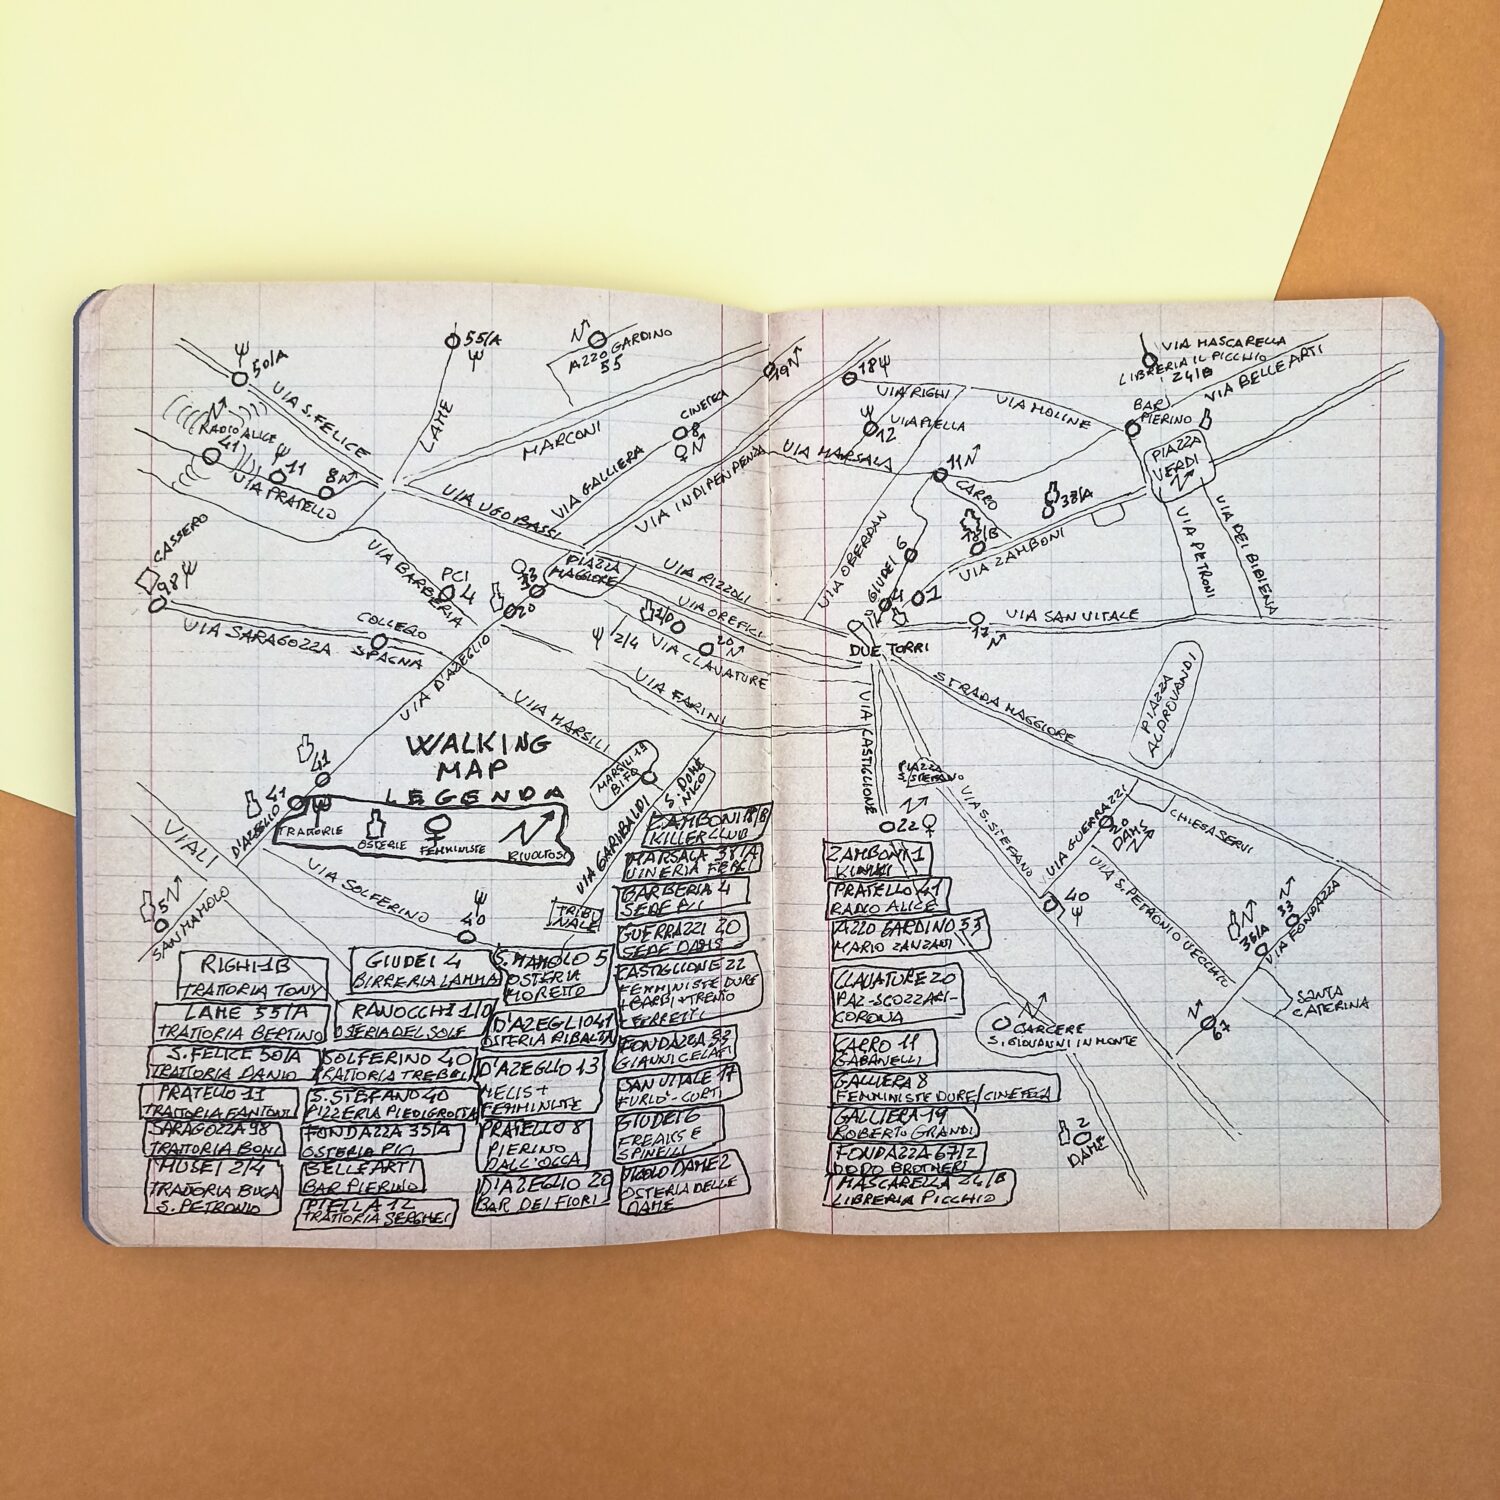 50/A
55/A
AZZO GARDINO
55
19
18
VIA MASCARELLA
LIBRERIA IL PICCHIO
24/B
VIA BELLE ARTI
VIA S. FELICE
LAME
MARCONI
CINETECA
8
VIA RIGHI
VIA MOLINE
BAR
PIERINO
PIAZZA
VERDI
RADIO ALICE
41
11
8
VIA PRATELLO
VIA GALLIERA
VIA INDIPENDENZA
12
VIA PIELLA
VIA MARSALA
11
CARRO
38/A
VIA UGO BASSI
PIAZZA
MAGGIORE
VIA RIZZOLI
VIA OREFICI
VIA OBERDAN
GIUDEI 6
18/B
VIA ZAMBONI
VIA PETRONI
VIA DEI BIBIENA
CASSERO
98
VIA BARBERIA
PCI
4
20
VIA SARAGOZZA
COLLEGO
SPAGNA
VIA D'AZEGLIO
1/D
2/4
VIA CLAVATURE
20
4
1
17
VIA SAN VITALE
DUE TORRI
VIA FARINI
VIA MARSILI
VIA CASTIGLIONE
STRADA MAGGIORE
PIAZZA
ALDROVANDI
41
WALKING
MAP
MARSILI 19
BIFO
S. DOME
NICO
PIAZZA
S. STEFANO
22
VIA S. STEFANO
VIA GUERRAZZI
20
DAMS
CHIESA SERVI
41
D'AZEGLIO
LEGENDA
TRATTORIE
OSTERIE
FEMMINISTE
RIVOLTOSI
VIALI
VIA SOLFERINO
VIA GARIBALDI
TRIBU
NALE
5
SAN MAMOLO
40
40
VIA S. PETRONIO VECCHIO
35/A
33
VIA FONDAZZA
SANTA
CATERINA
67
CARCERE
S. GIOVANNI IN MONTE
2
DAME
RIGHI 1B
TRATTORIA TONY
LAME 55/A
TRATTORIA BERTINO
S. FELICE 50/A
TRATTORIA DANIO
PRATELLO 11
TRATTORIA FANTONI
SARAGOZZA 98
TRATTORIA BONI
MUSEI 2/4
TRATTORIA BUCA
S. PETRONIO
GIUDEI 4
BIRRERIA LAMMA
RANOCCHI 1/D
OSTERIA DEL SOLE
SOLFERINO 40
TRATTORIA TREBBI
S. STEFANO 40
PIZZERIA PIEDIGROTTA
FONDAZZA 35/A
OSTERIA PIGI
BELLE ARTI
BAR PIERINO
PIELLA 12
TRATTORIA SERGHEI
S. MAMOLO 5
OSTERIA
MORETTO
D'AZEGLIO 41
OSTERIA RIBALTA
D'AZEGLIO 13
MELIS +
FEMMINISTE
PRATELLO 8
PIERINO
DALL'OCCA
D'AZEGLIO 20
BAR DEI FIORI
ZAMBONI 18/B
KILLER CLUB
MARSALA 38/A
VINERIA
BARBERIA 4
SEDE PCI
GUERRAZZI 20
SEDE DAMS
CASTIGLIONE 22
FEMMINISTE DURE
FONDAZZA 33
GIANNI CELATI
SAN VITALE 17
FURLO' - CURTI
GIUDEI 6
FREAKS E
SPINELLI
VICOLO DAME 2
OSTERIA DELLE
DAME
ZAMBONI 1
PRATELLO 41
RADIO ALICE
AZZO GARDINO 53
MARIO ZANZANI
CLAVATURE 20
PAZ-SCOZZARI-
CORONA
CARRO 11
GABANELLI
GALLIERA 8
FEMMINISTE DURE/CINETECA
GALLIERA 19
ROBERTO GRANDI
FONDAZZA 67/2
DODO BROTHERS
MASCARELLA 24/B
LIBRERIA PICCHIO